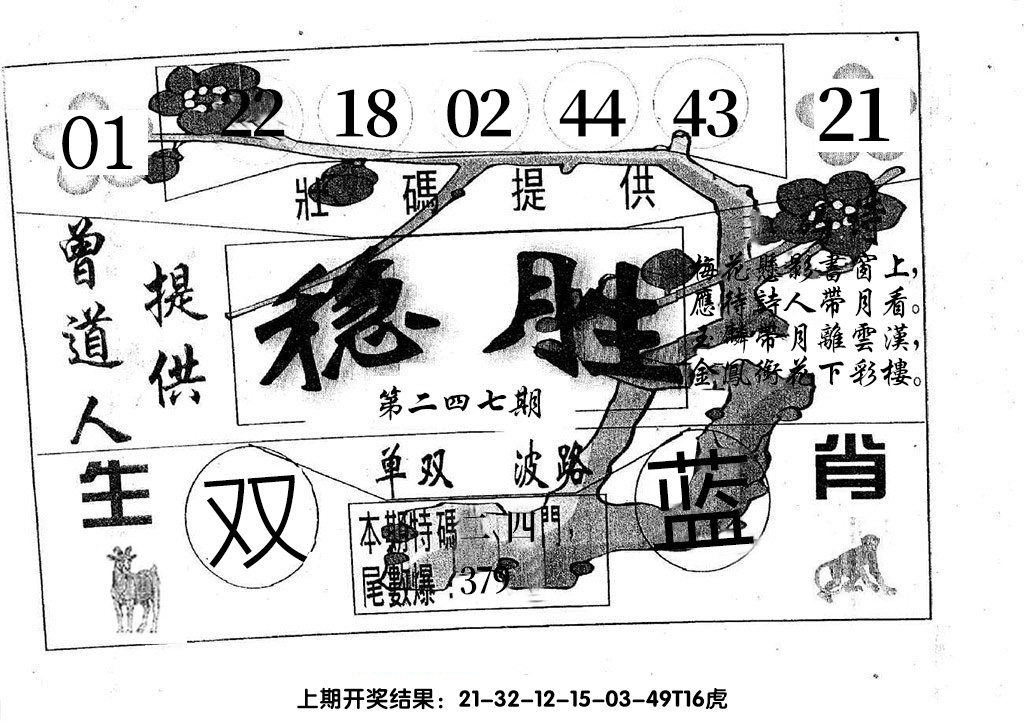 01 22 18 02 44 43 21
壯碼提供
曾道人
提供
稳胜
第二四七期
梅花懸影書窗上，
應待詩人帶月看。
玉麟帶月離雲漢，
金鳳銜花下彩樓。
生肖
单双 波路
双
蓝
本期特碼二、四門，
尾數爆：379
上期开奖结果：21-32-12-15-03-49T16虎